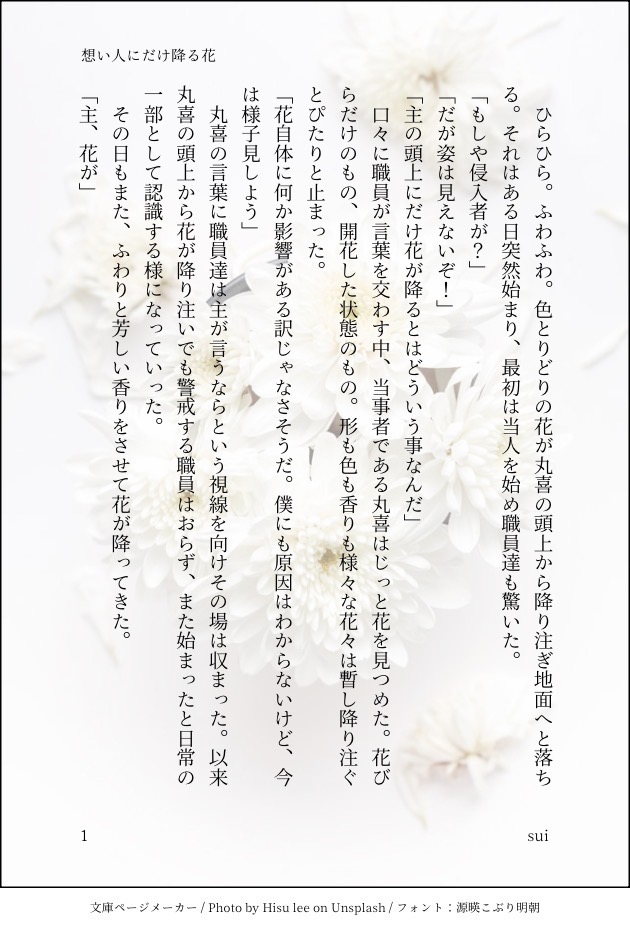 想い人にだけ降る花
　ひらひら。ふわふわ。色とりどりの花が丸喜の頭上から降り注ぎ地面へと落ち
る。それはある日突然始まり、最初は当人を始め職員達も驚いた。
「もしや侵入者が？」
「だが姿は見えないぞ！」
「主の頭上にだけ花が降るとはどういう事なんだ」
　口々に職員が言葉を交わす中、当事者である丸喜はじっと花を見つめた。花び
らだけのもの、開花した状態のもの。形も色も香りも様々な花々は暫し降り注ぐ
とぴたりと止まった。
「花自体に何か影響がある訳じゃなさそうだ。僕にも原因はわからないけど、今
は様子見しよう」
　丸喜の言葉に職員達は主が言うならという視線を向けその場は収まった。以来
丸喜の頭上から花が降り注いでも警戒する職員はおらず、また始まったと日常の
一部として認識する様になっていった。
　その日もまた、ふわりと芳しい香りをさせて花が降ってきた。
「主、花が」
1
sui
文庫ページメーカー / Photo by Hisu lee on Unsplash / フォント：源暎こぶり明朝